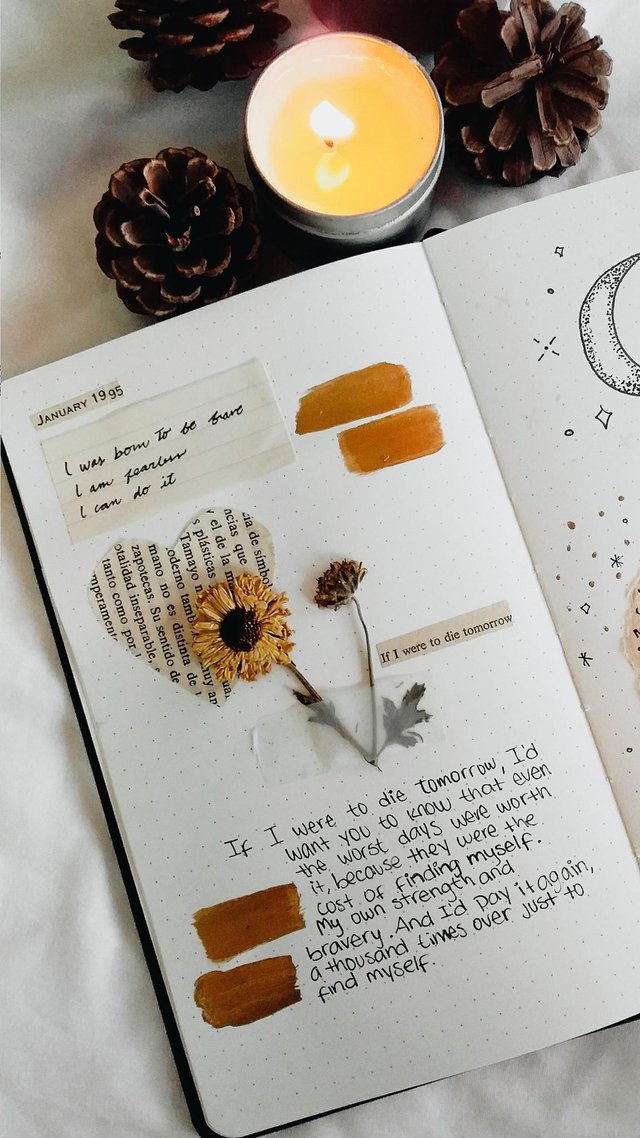 JANUARY 1995
I was born to be brave
I am fearless
I can do it
cia de símbol
ncias que
el de la m
s plásticas
Tamayo n
oderno tamb
mano no es distinta de
zapotecas. Su sentido de
otalidad inseparable,
tanto como por
mperamento
If I were to die tomorrow
If I were to die tomorrow, I'd
want you to know that even
the worst days were worth
it, because they were the
cost of finding myself.
My own strength and
bravery. And I'd pay it again,
a thousand times over just to
find myself.